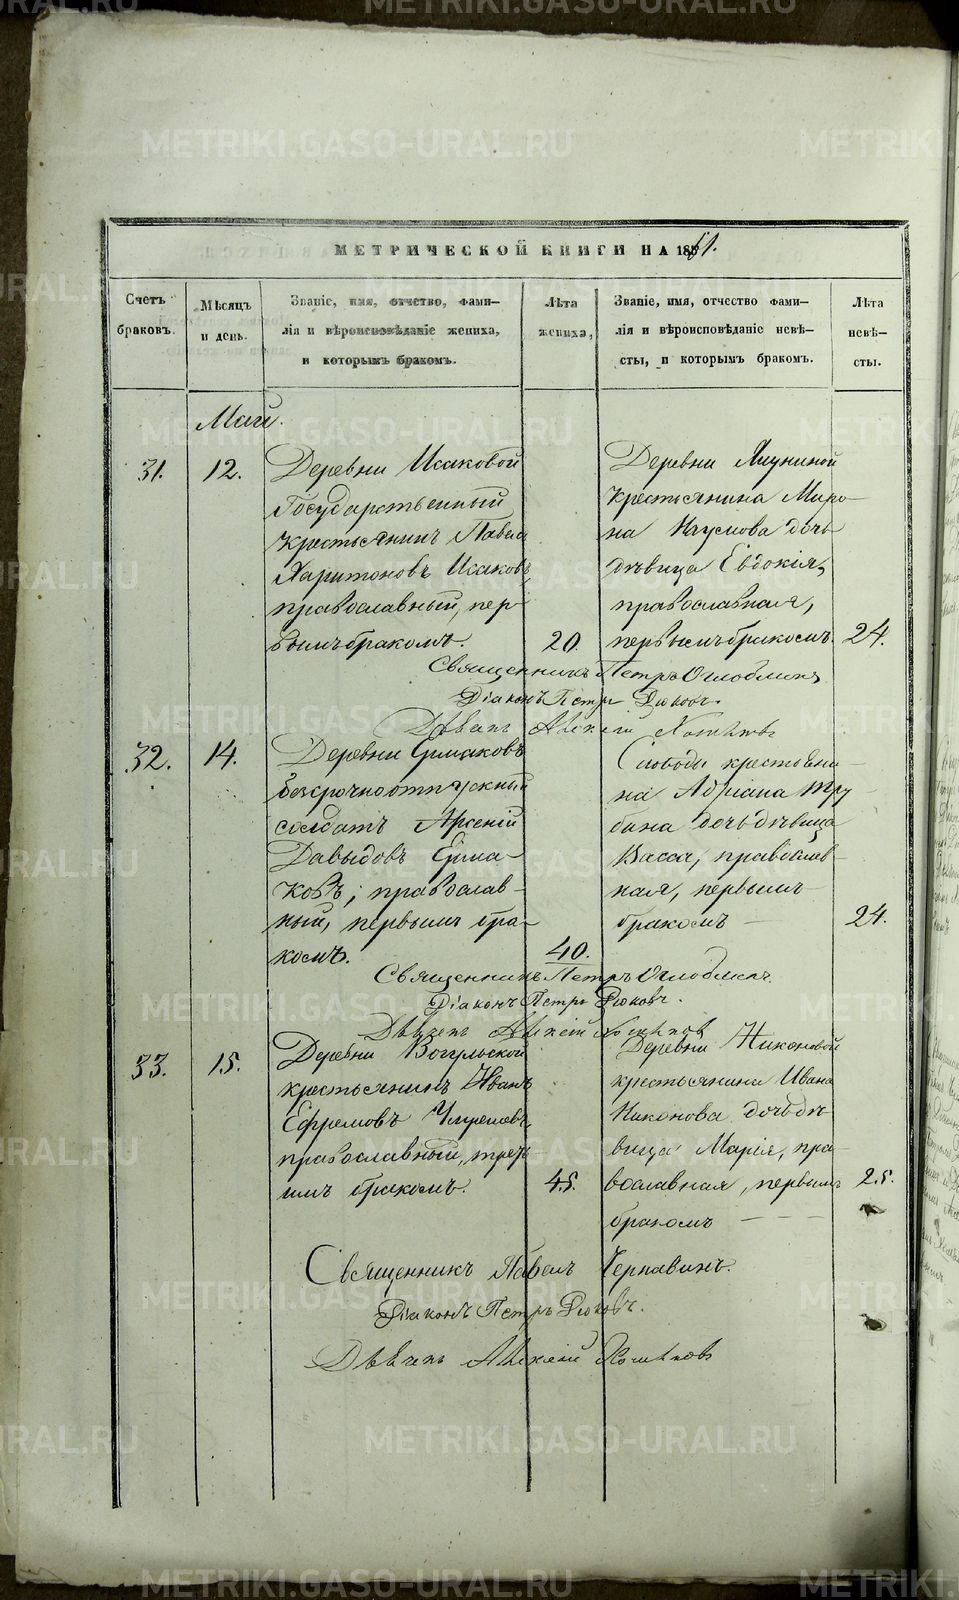 МЕТРИЧЕСКОЙ КНИГИ НА 1861.
Счетъ браковъ.
Мѣсяцъ и день.
Званіе, имя, отчество, фами-
лія и вѣроисповѣданіе жениха,
и которымъ бракомъ.
Лѣта жениха,
Званіе, имя, отчество фами-
лія и вѣроисповѣданіе невѣ-
сты, и которымъ бракомъ.
Лѣта невѣ-
сты.
Май.
31. 12.
Деревни Исаковой
Государственный
крестьянинъ Павелъ
Харитоновъ Исаковъ,
православный, пер-
вымъ бракомъ.
20.
Деревни
крестьянина Миро-
на Наумова дочь
дѣвица Евдокія,
православная,
первымъ бракомъ.
24.
Священникъ Петръ Оглоблинъ
Діаконъ Петръ Рюковъ.
32. 14.
Деревни Ермаковъ
безсрочноотпускный
солдатъ Арсеній
Давыдовъ Ерма-
ковъ, православ-
ный, первымъ бра-
комъ.
40.
Слободы крестьяни-
на Адріана Тру
бина дочь дѣвица
Васса, православ-
ная, первымъ
бракомъ
24.
Священникъ Петръ Оглоблинъ.
Діаконъ Петръ Рюковъ.
33. 15.
Деревни Вогульской
крестьянинъ Иванъ
Ефремовъ
православный, треть-
имъ бракомъ.
45.
Деревни Никоновой
крестьянина Ивана
Никонова дочь дѣ-
вица Марія, пра-
вославная, первымъ
бракомъ
25.
Священникъ Павелъ Чернавинъ.
Діаконъ Петръ Рюковъ.
METRIKI.GASO-URAL.RU